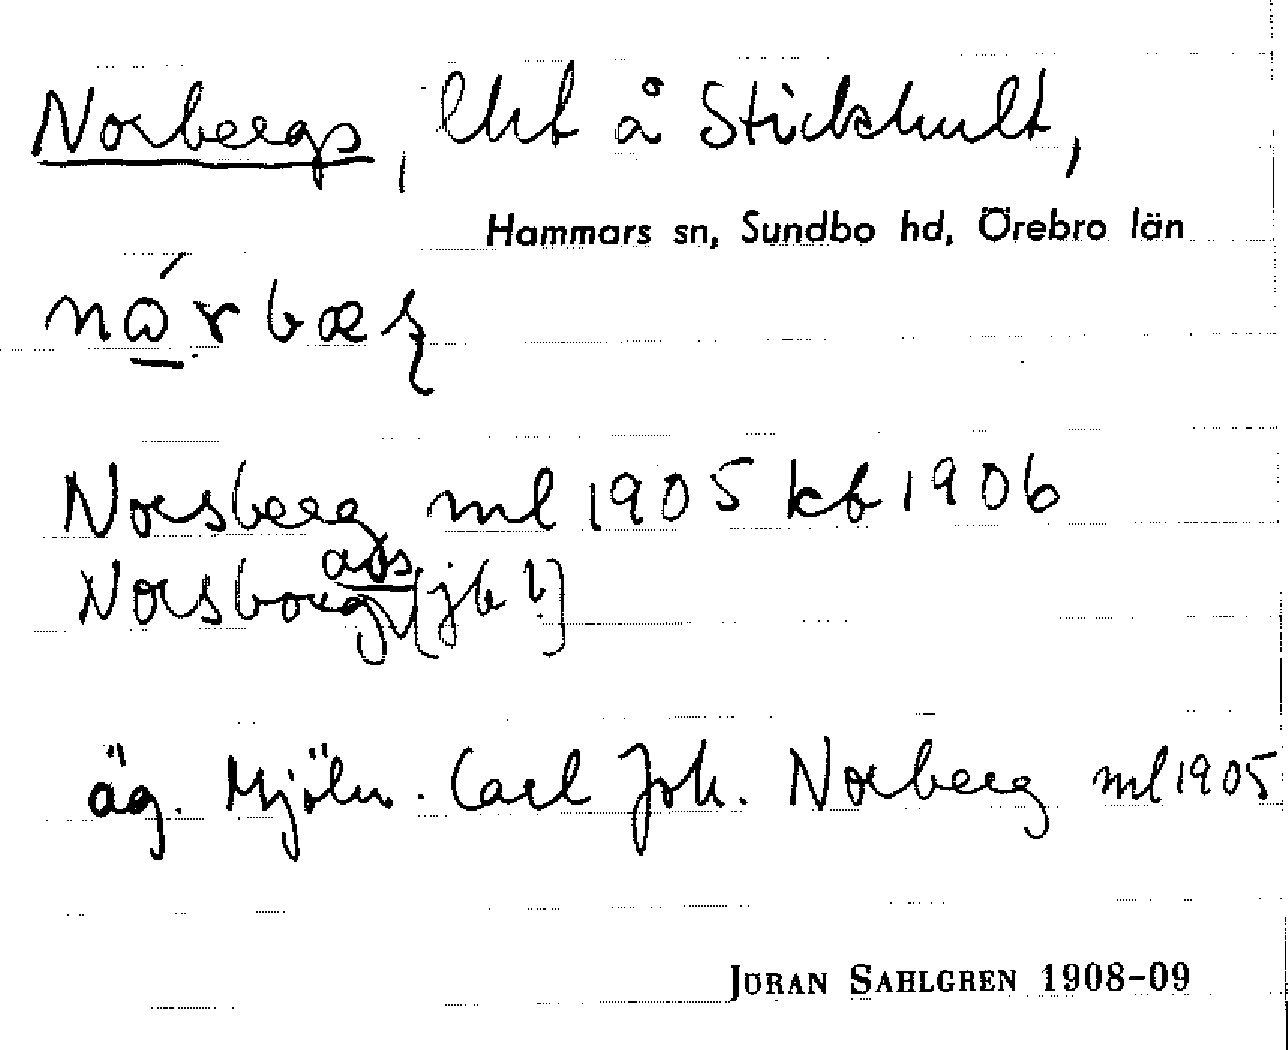 Norbergs, lht å Stickhult,
Hammars sn, Sundbo hd, Örebro län
Norsberg ml 1905 kb 1906
Norsborg avs. [jb!]
äg. Mjöln. Carl Joh. Norberg ml 1905
JÖRAN SAHLGREN 1908-09